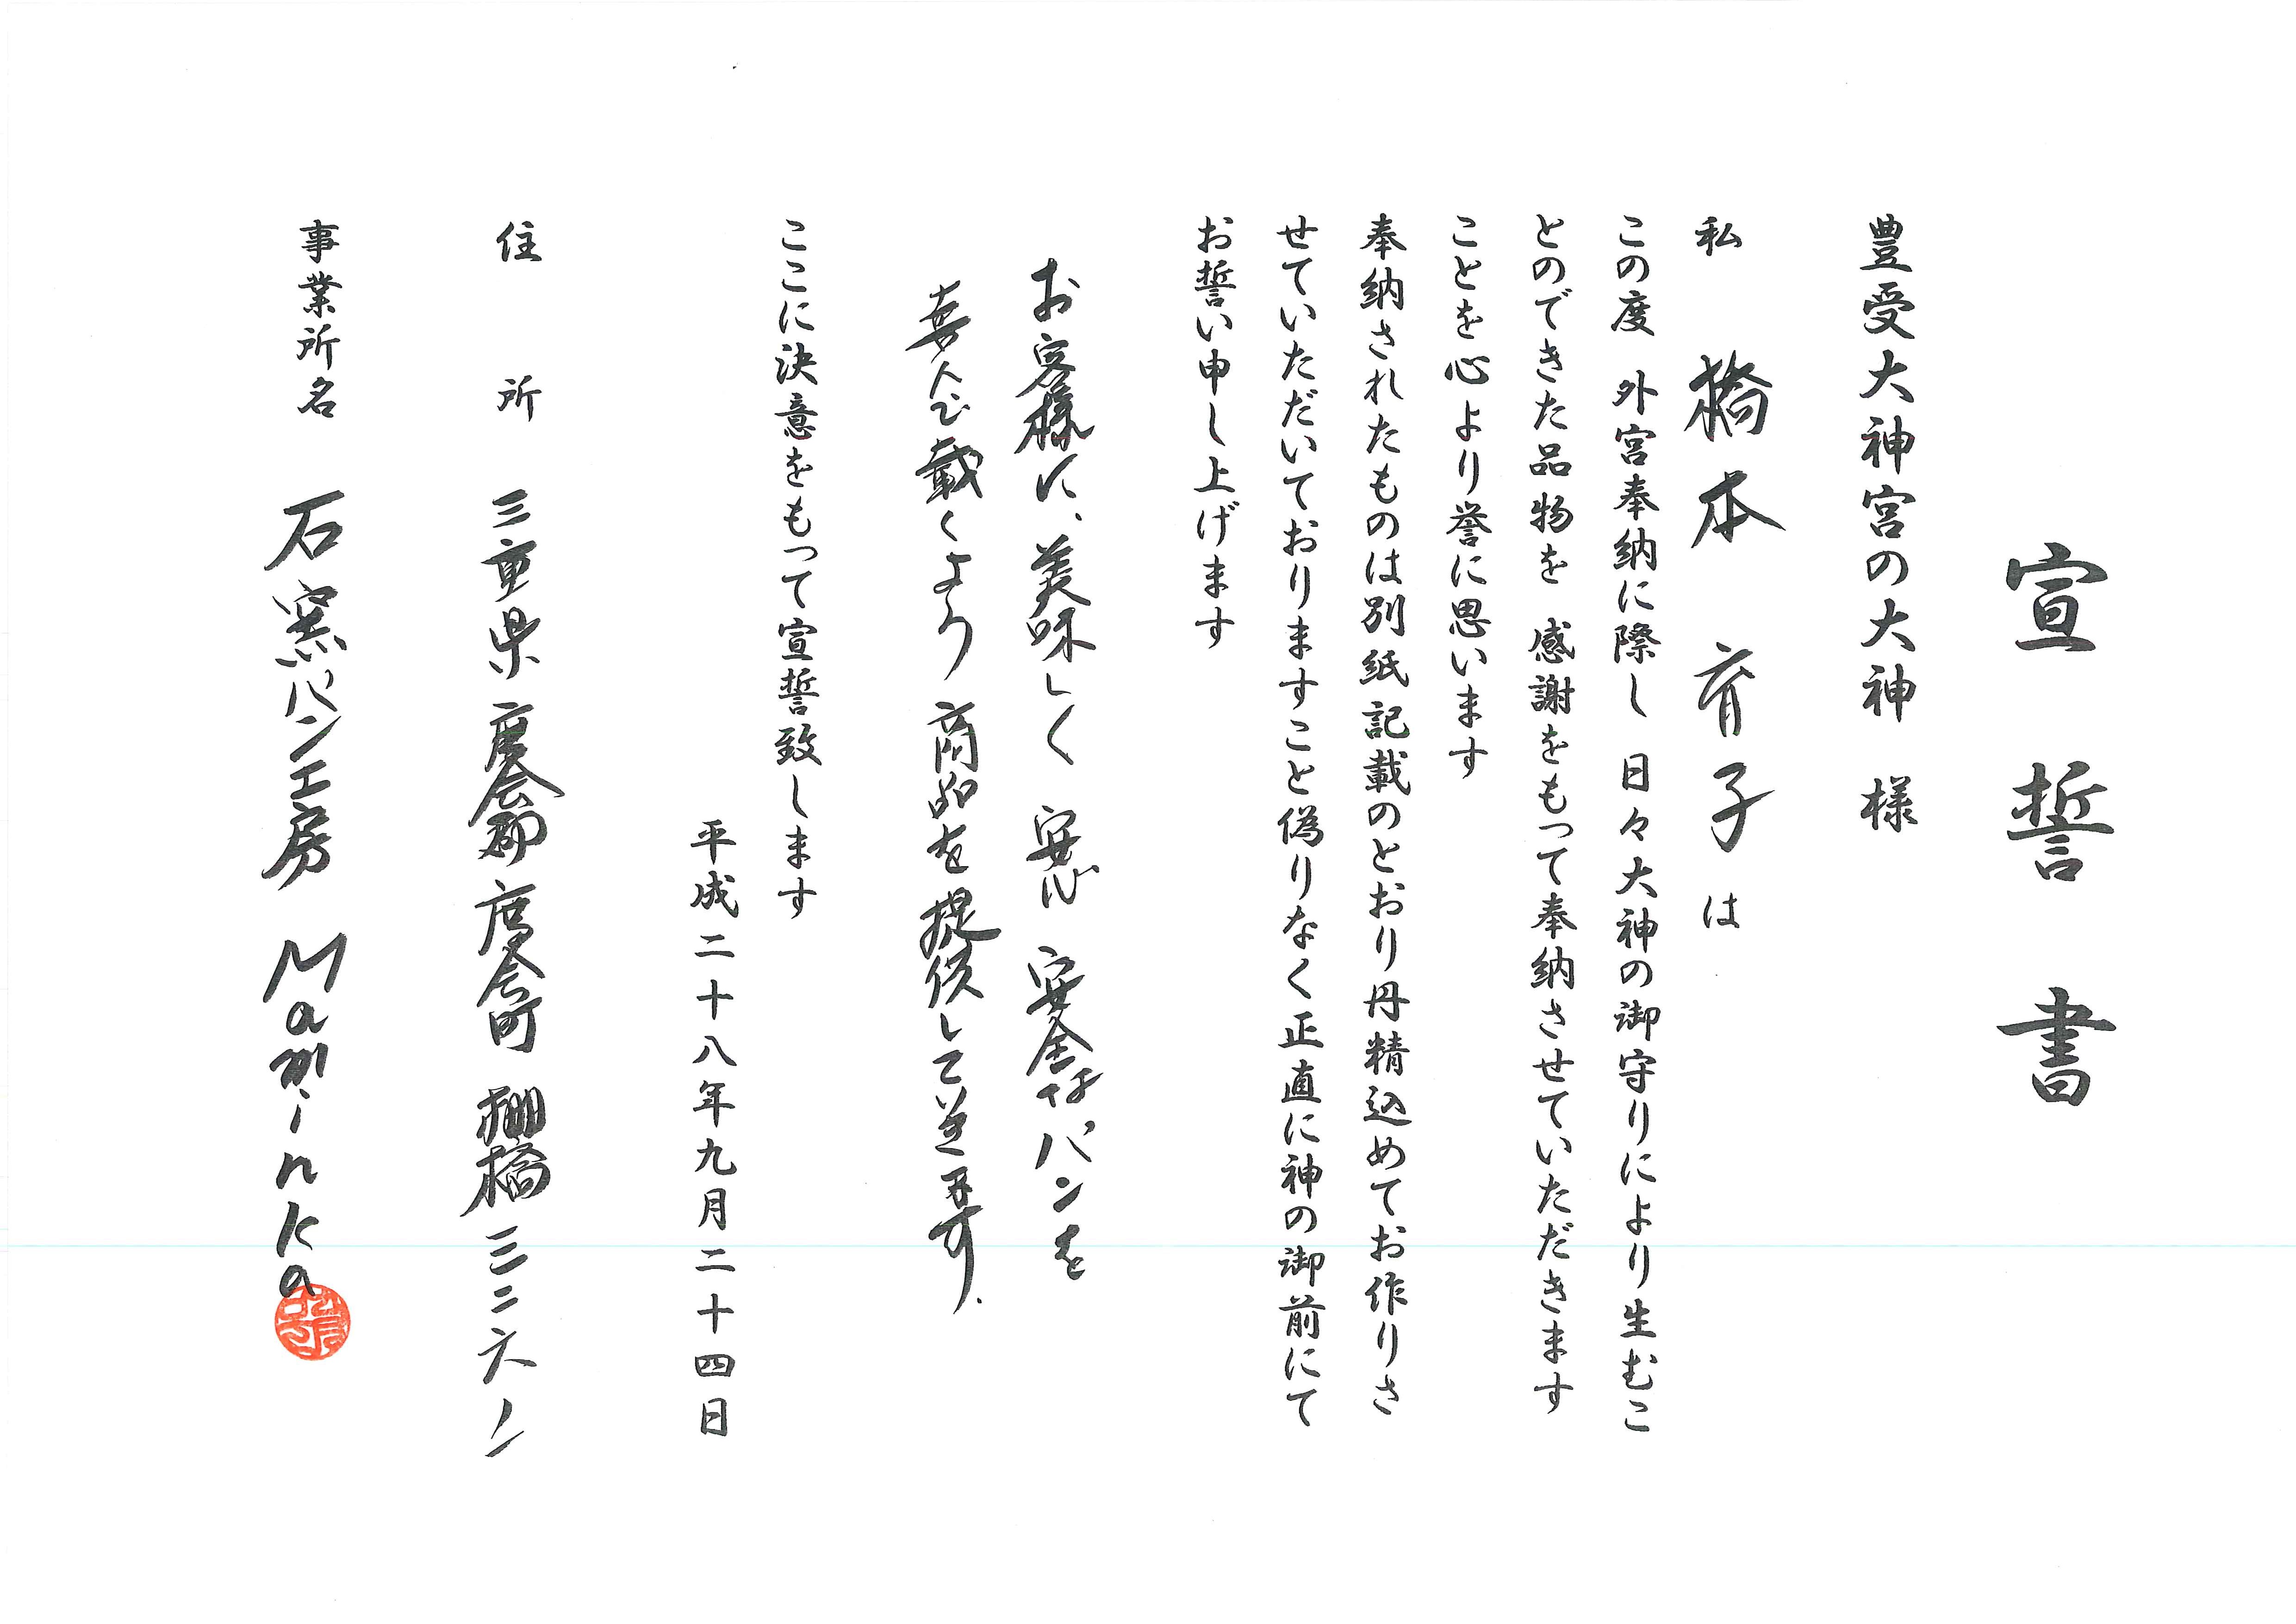 宣誓書
豊受大神宮の大神 様
私 橋本 育子 は
この度 外宮奉納に際し 日々大神の御守りにより生むこ
とのできた品物を 感謝をもって奉納させていただきます
ことを心より誉に思います
奉納されたものは別紙記載のとおり丹精込めてお作りさ
せていただいておりますこと偽りなく正直に神の御前にて
お誓い申し上げます
お客様に、美味しく 安心 安全なパンを
喜んで載くよう 商品を提供して並ます.
ここに決意をもって宣誓致します
平成二十八年九月二十四日
住所 三重県度会郡度会町棚橋三二六ノ一
事業所名 石窯パン工房 Maminka